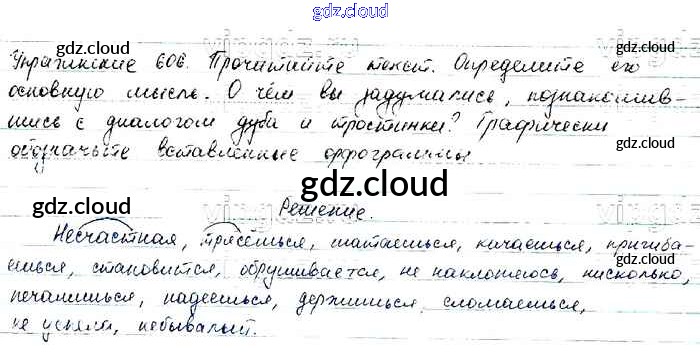 gdz.cloud
gdz.cloud gdz.cloud gdz.cloud
Упражнение 606. Прочитайте текст. Определите его
основную мысль. О чём вы задумались, познакомив-
шись с диалогом дуба и тростинки? Графически
обозначьте вставленные орфограммы.
gdz.cloud
Решение.
Несчастная, трясёшься, шатаешься, качаешься, пригиба-
ешься, становится, обрушивается, не наклоняюсь, нисколько,
gdz.cloud gdz.cloud gdz.cloud
печалишься, надеешься, держишься, сломаешься,
не успели, небывалый.
gdz.cloud